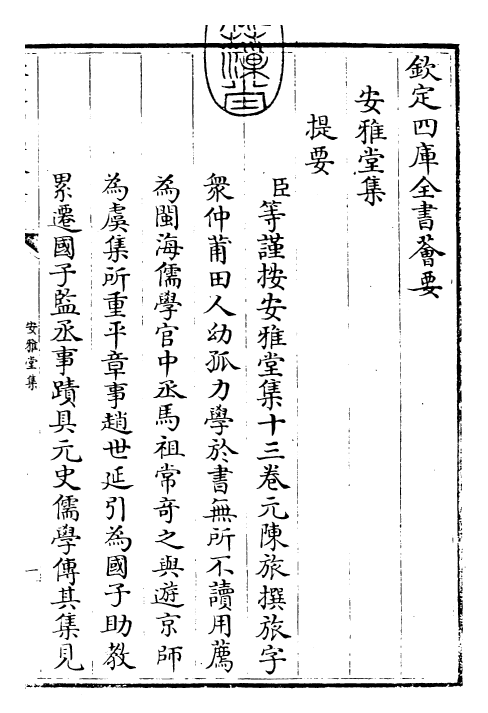 欽定四庫全書薈要
安雅堂集
提要
臣等謹按安雅堂集十三卷元陳旅撰旅字
衆仲莆田人幼孤力學於書無所不讀用薦
為閩海儒學官中丞馬祖常奇之與遊京師
為虞集所重平章事趙世延引為國子助教
累遷國子監丞事蹟具元史儒學傳其集見
安雅堂集
一